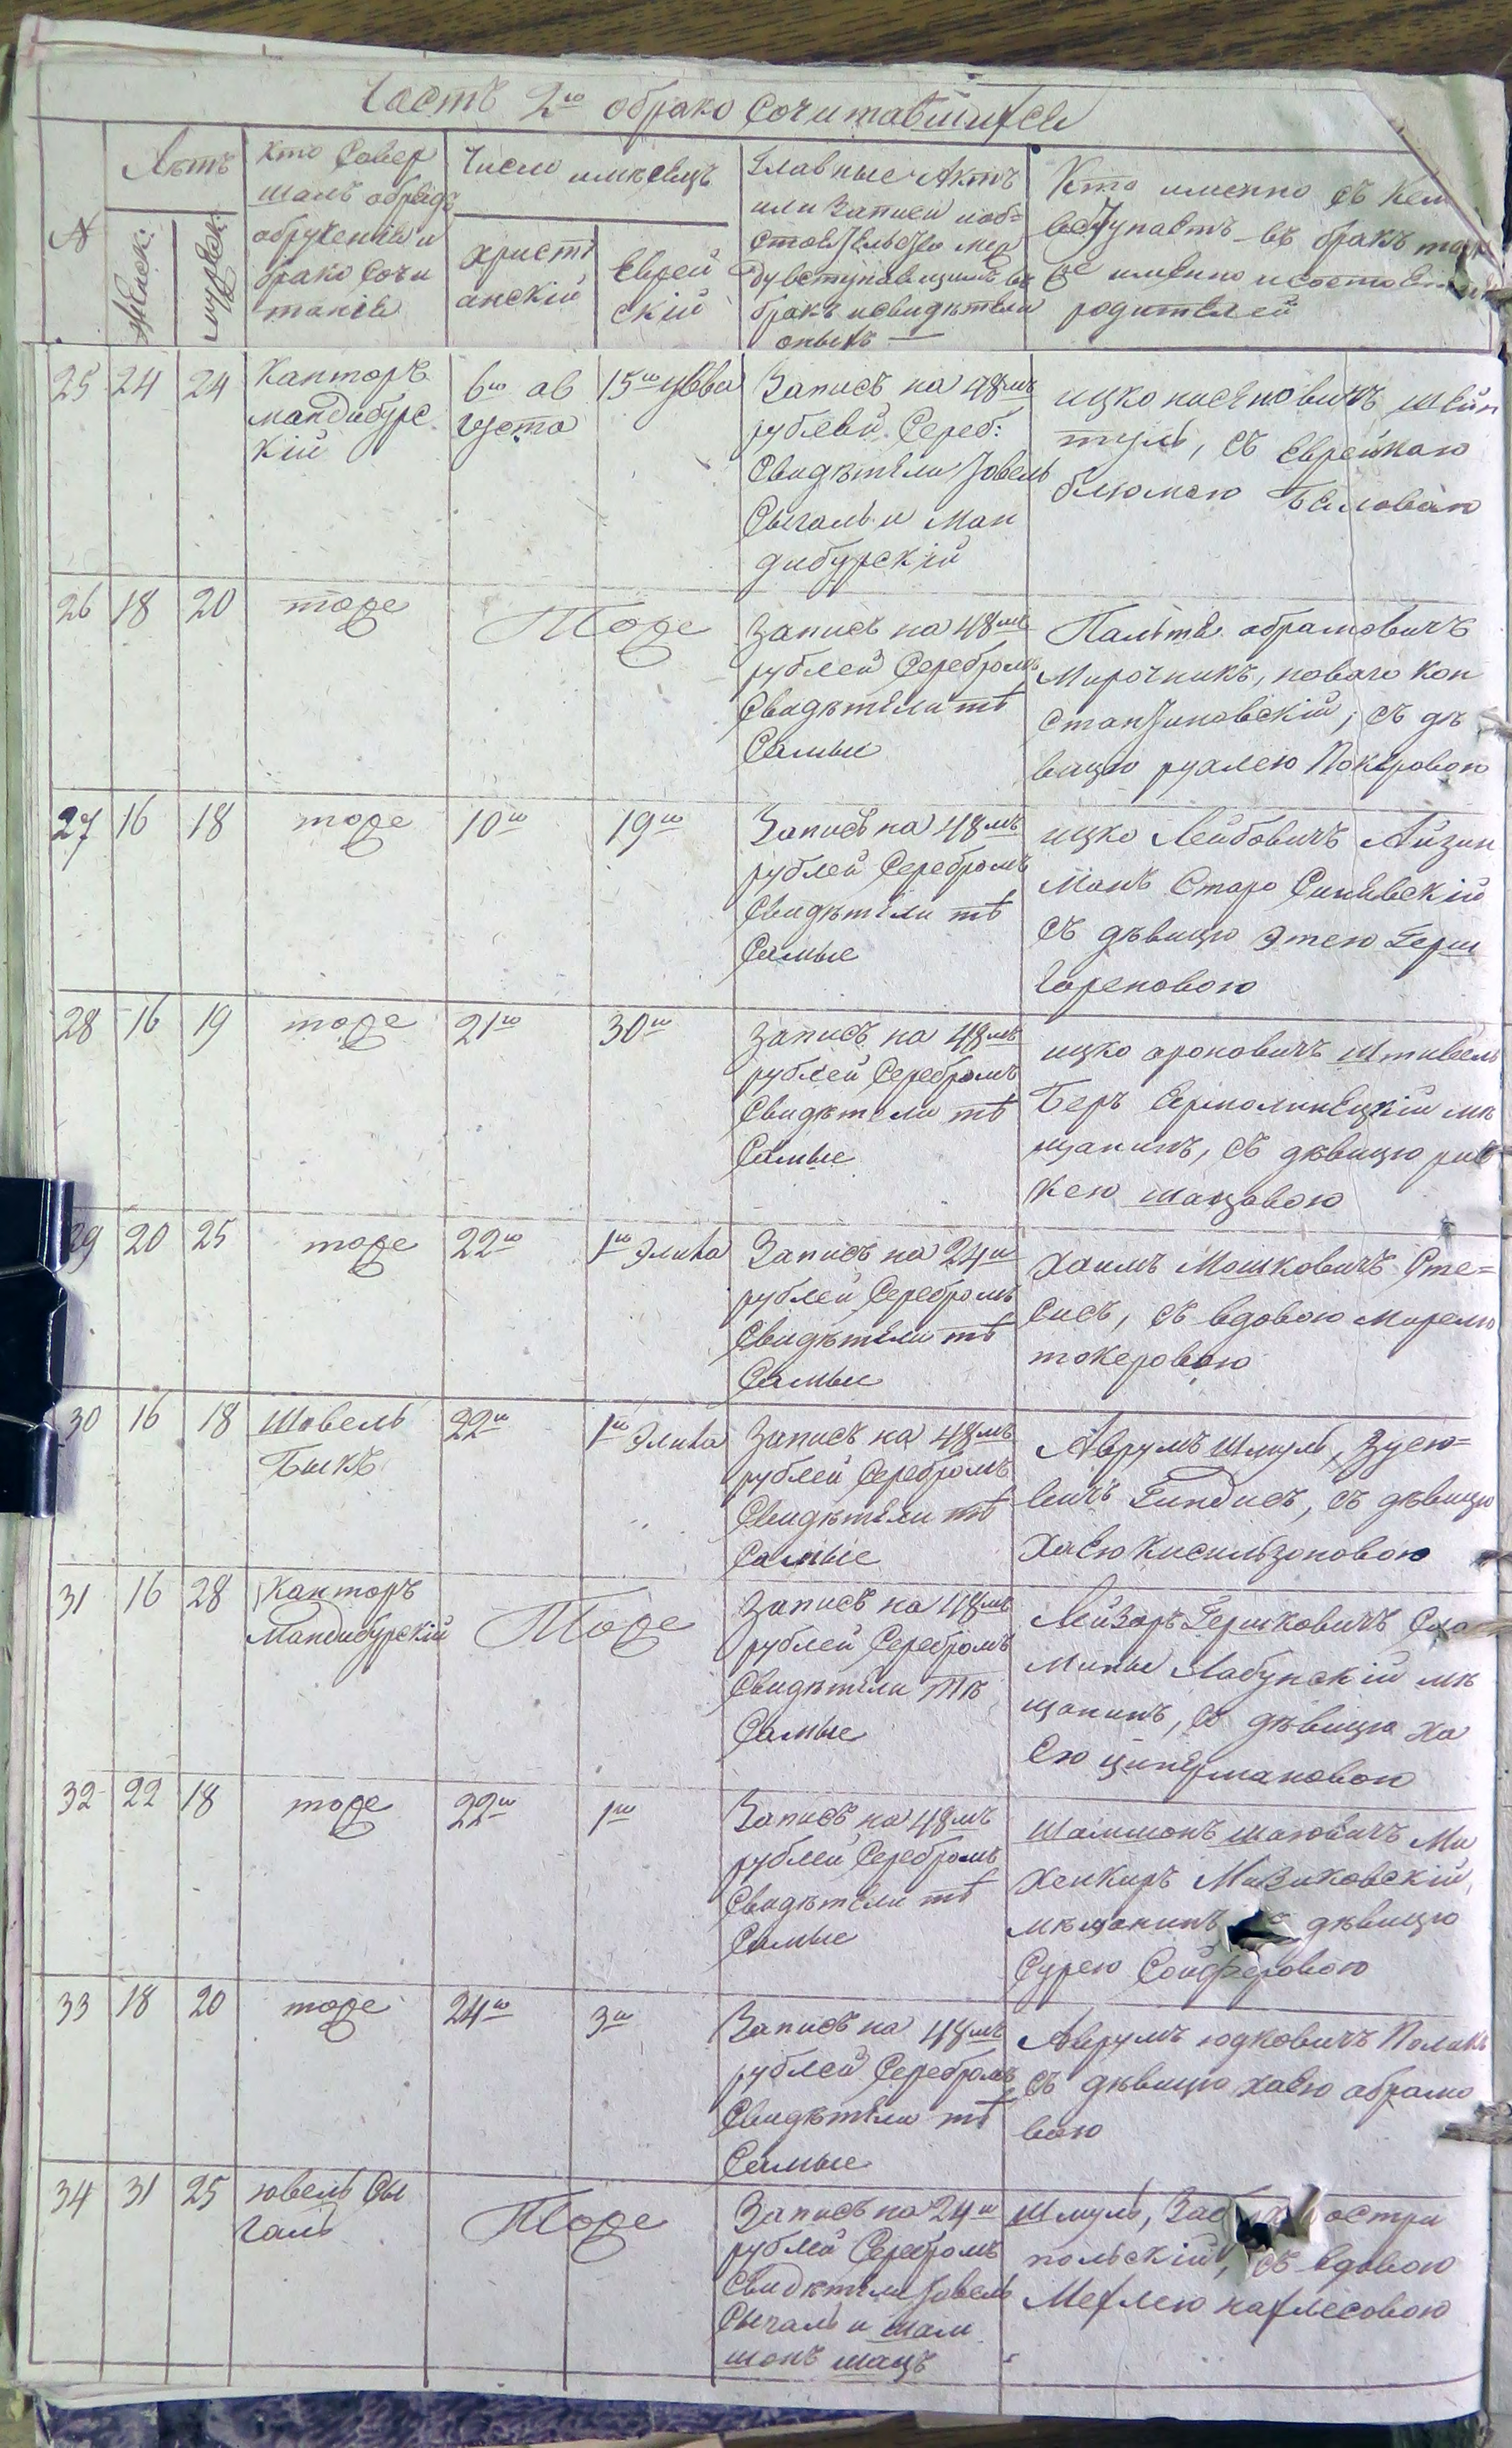 Часть 2ю обрако сочитавшихся
№
Лѣтъ
женск:
мужеск:
кто Совер
шалъ обрядъ
обрученія и
брако сочи
танія
Число имѣсяцъ
христі
анскій
Еврей
скій
Главные Актъ
или Записи иоб=
стоятельство меж
ду вступающимъ въ
бракъ исвидѣтели
оныхъ —
Кто именно съ кем
вступаетъ въ бракъ так
же имянно исостоянія
родителей
25 24 24
Канторъ
мандибурс
кій
6го ав
густа
15го Ава
Запись на 48мъ
рублей Сереб:
Свидѣтели Іовель
Сыгаль и Ман
дибурскій
ицко Штейн
съ Еврейкаю
блюмою
26 18 20 тоже Тоже
Запись на 48мъ
рублей Серебромъ
Свидѣтели тѣ
Самые
Пальтя абрамовичъ
Мирочникъ, новаго кон
стантиновскій, съ дѣ
вицю рухлею Покеровою
27 16 18 тоже 10го 19го
Запись на 48мъ
рублей Серебромъ
Свидѣтели тѣ
Самые
ицко Лейбовичъ Айзин
манъ Старо Синявскій
съ дѣвицю Этею Герш
гореновою
28 16 19 тоже 21го 30го
Запись на 48мъ
рублей Серебромъ
Свидѣтели тѣ
Самые
ицко ароновичъ Штивель
Беръ Ермолинецкій мѣ
щанинъ, съ дѣвицю рив
кею шацовою
29 20 25 тоже 22го 1го Элила
Запись на 24и
рублей Серебромъ
Свидѣтели тѣ
Самые
Хаимъ Мошковичъ Сте=
сисъ, съ вдовою Мирелю
токеровою
30 16 18
Шовель
Быкъ
22го 1го Элила
Запись на 48мъ
рублей Серебромъ
Свидѣтели тѣ
Самые
Аврумъ Шмуль, Зусю=
вичъ Гиндисъ, съ дѣвицю
Хаею Кисильзоновою
31 16 28
Канторъ
Мандибурскій
Тоже
Запись на 48мъ
рублей Серебромъ
Свидѣтели Тѣ
Самые
Лейзоръ Гершковичъ
Лабунскій мѣ
щанинъ, со дѣвицю ха
сю Цимермановою
32 22 18 тоже 22го 1го
Запись на 48мъ
рублей Серебромъ
Свидѣтели тѣ
Самые
Шаммонъ шаювичъ Ми
хенкиръ Мизиковскій,
мѣщанинъ со дѣвицю
Сурею Сойферовою
33 18 20 тоже 24го 3го
Запись на 48мъ
рублей Серебромъ
Свидѣтели тѣ
Самые
Аврумъ юдковичъ Полякъ
съ дѣвицю хаею абрамо
вою
34 31 25
ювель Сы
галь
Тоже
Запись на 24и
рублей Серебромъ
Свидѣтели Іовель
Сыгаль и шам
шонъ шацъ
Шмуль, остри
польскій, съ вдовою
Мехлею нахлесовою